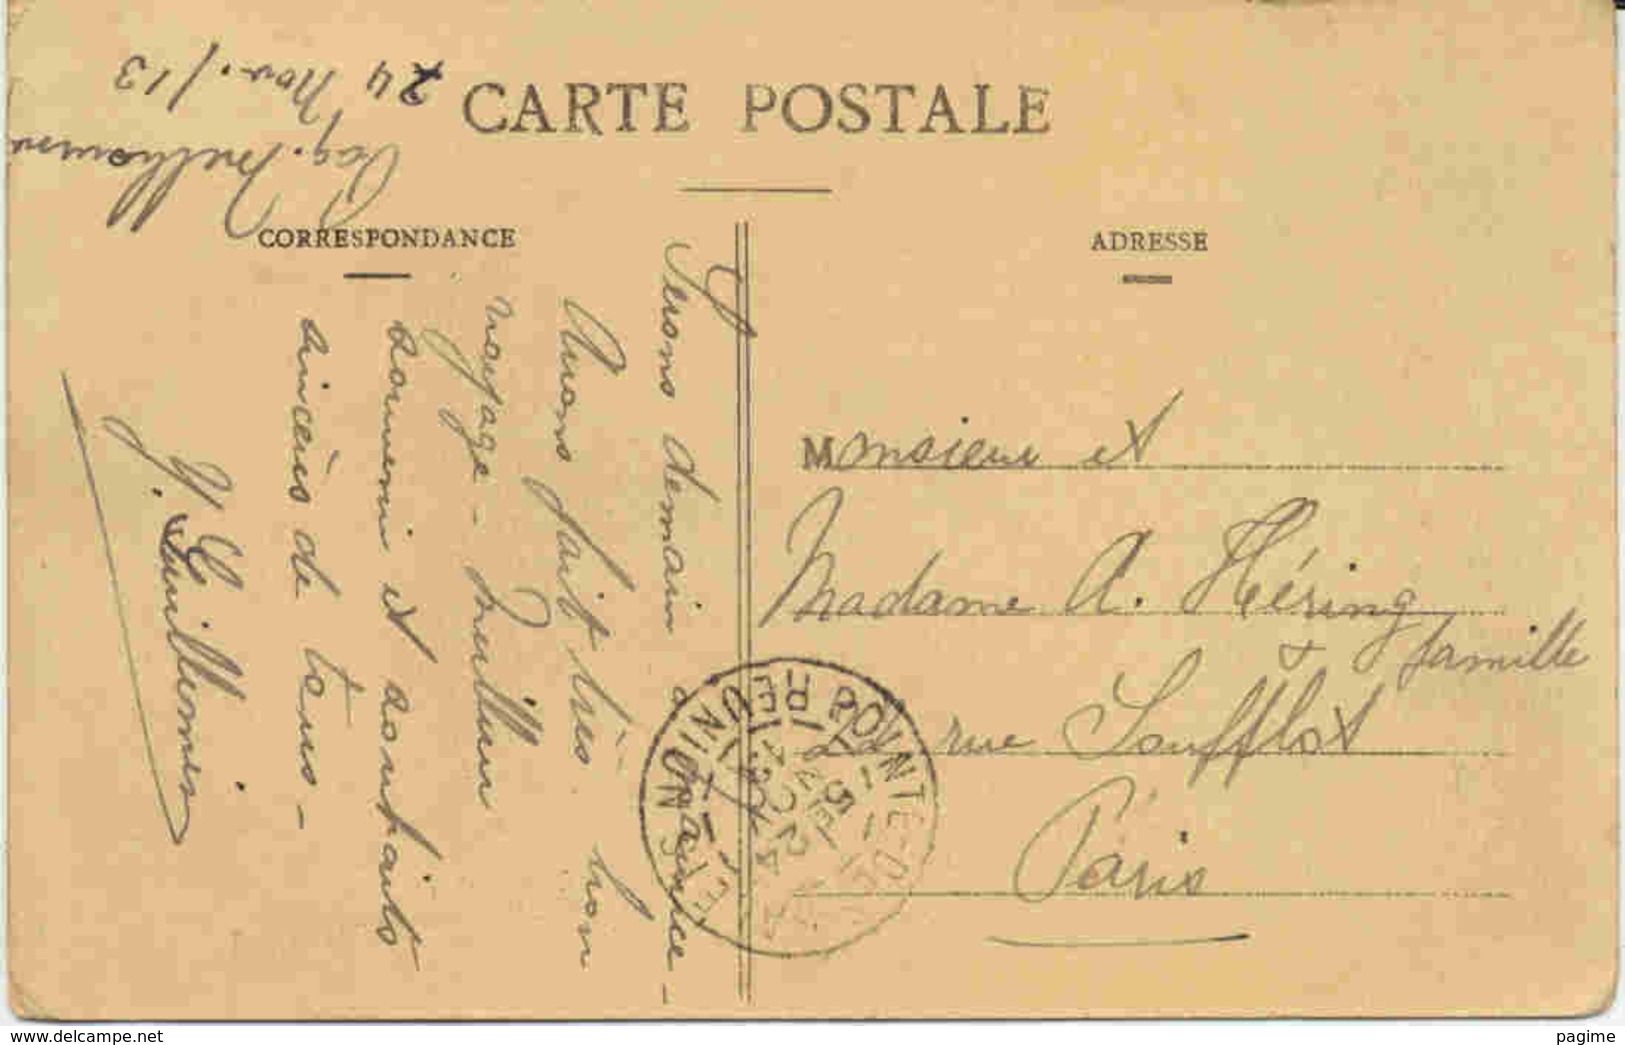 CARTE POSTALE
CORRESPONDANCE
ADRESSE
24 Nov./13
Serons demain à Maurice -
Avons fait très bon
voyage - Meilleur
souvenir et souhaits
sincères de tous -
Y. Guillemin
Monsieur et
Madame A. Héring
& famille
22 rue Soufflot
Paris
POINTE-DES-GALETS
REUNION
delcampe.net
pagime